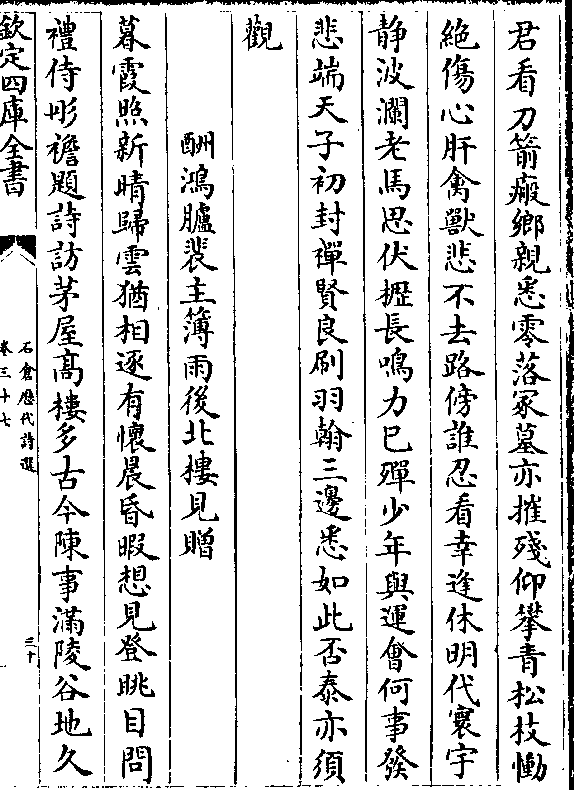 君看刀箭瘢鄉親悉零落冢墓亦摧殘仰攀青松枝慟
絶傷心肝禽獸悲不去路傍誰忍看幸逢休明代寰宇
静波瀾老馬思伏櫪長鳴力已殫少年與運會何事發
悲端天子初封禪賢良刷羽翰三邊悉如此否泰亦須
觀
酬鴻臚裴主簿雨後北樓見贈
暮霞照新晴歸雲猶相逐有懷晨昏暇想見登眺目問
禮侍彤襜題詩訪茅屋髙樓多古今陳事滿陵谷地久
欽定四庫全書
石倉歴代詩選
卷三十七
三十